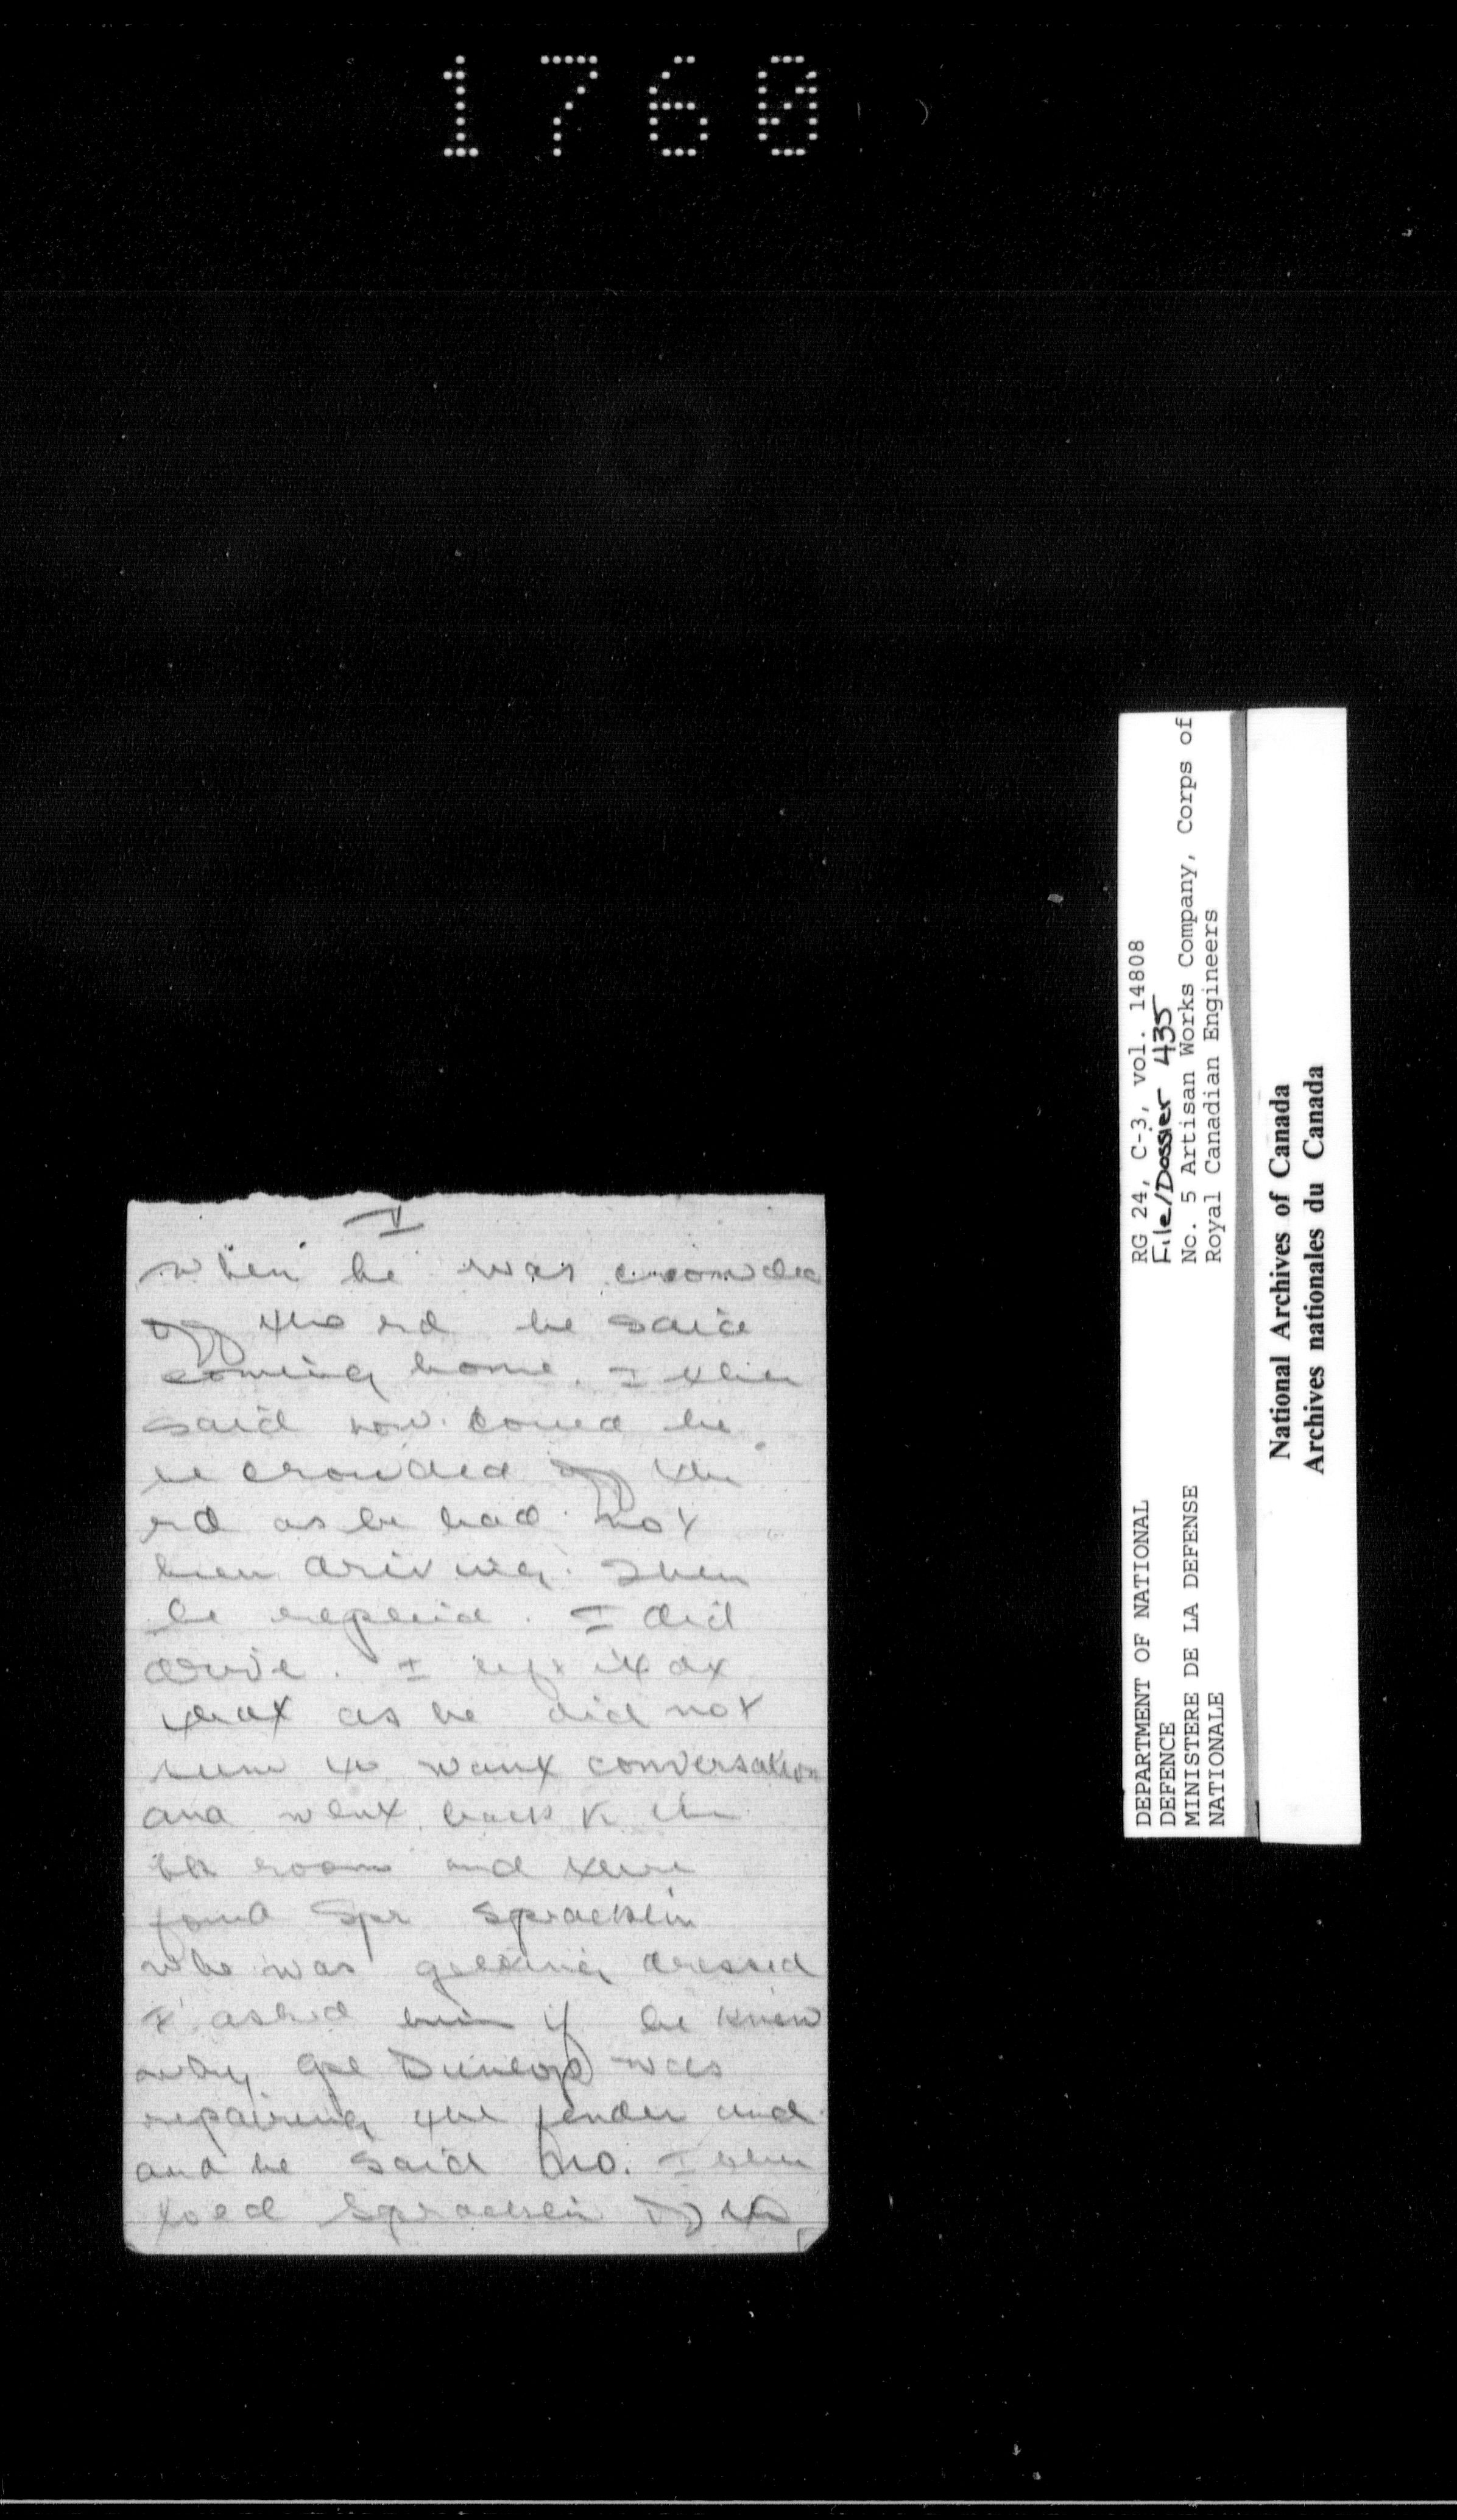 1760
V
when he was crowded
off the rd he said
coming home. I then
said how could he
be crowded off the
rd as he had not
been driving. Then
he replied. I did
drive. I left it at
that as he did not
seem to want conversation
and went back to the
room and there
found Spr Spracklin
who was getting dressed
I asked him if he knew
why Cpl Dunlop was
repairing the fender and
and he said No. I then
told Spracklin
RG 24, C-3, vol. 14808
File/Dossier 435
No. 5 Artisan Works Company, Corps of
Royal Canadian Engineers
DEPARTMENT OF NATIONAL
DEFENCE
MINISTERE DE LA DEFENSE
NATIONALE
National Archives of Canada
Archives nationales du Canada